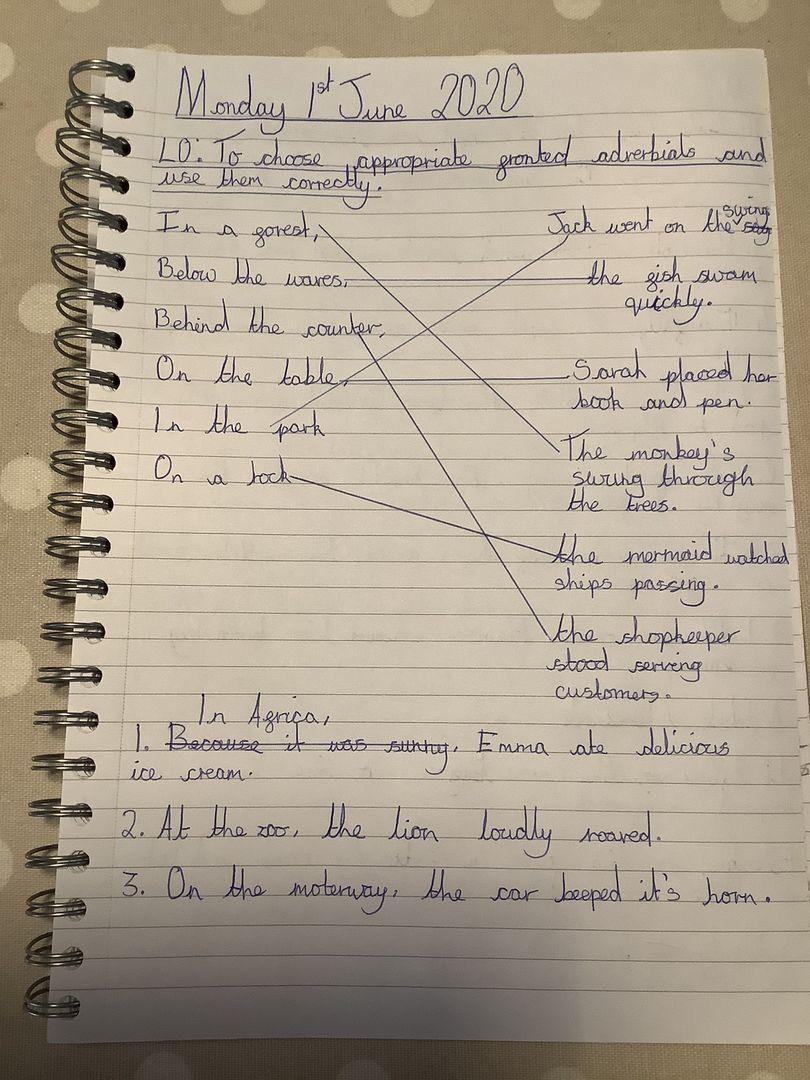 Monday 1st June 2020
LO: To choose appropriate fronted adverbials and
use them correctly.
In a forest,
Below the waves,
Behind the counter,
On the table,
In the park
On a rock
Jack went on the swing
the fish swam
quickly.
Sarah placed her
book and pen.
The monkey's
swung through
the trees.
the mermaid watched
ships passing.
the shopkeeper
stood serving
customers.
In Africa,
1. Because it was sunny, Emma ate delicious
ice cream.
2. At the zoo, the lion loudly roared.
3. On the moterway, the car beeped it's horn.